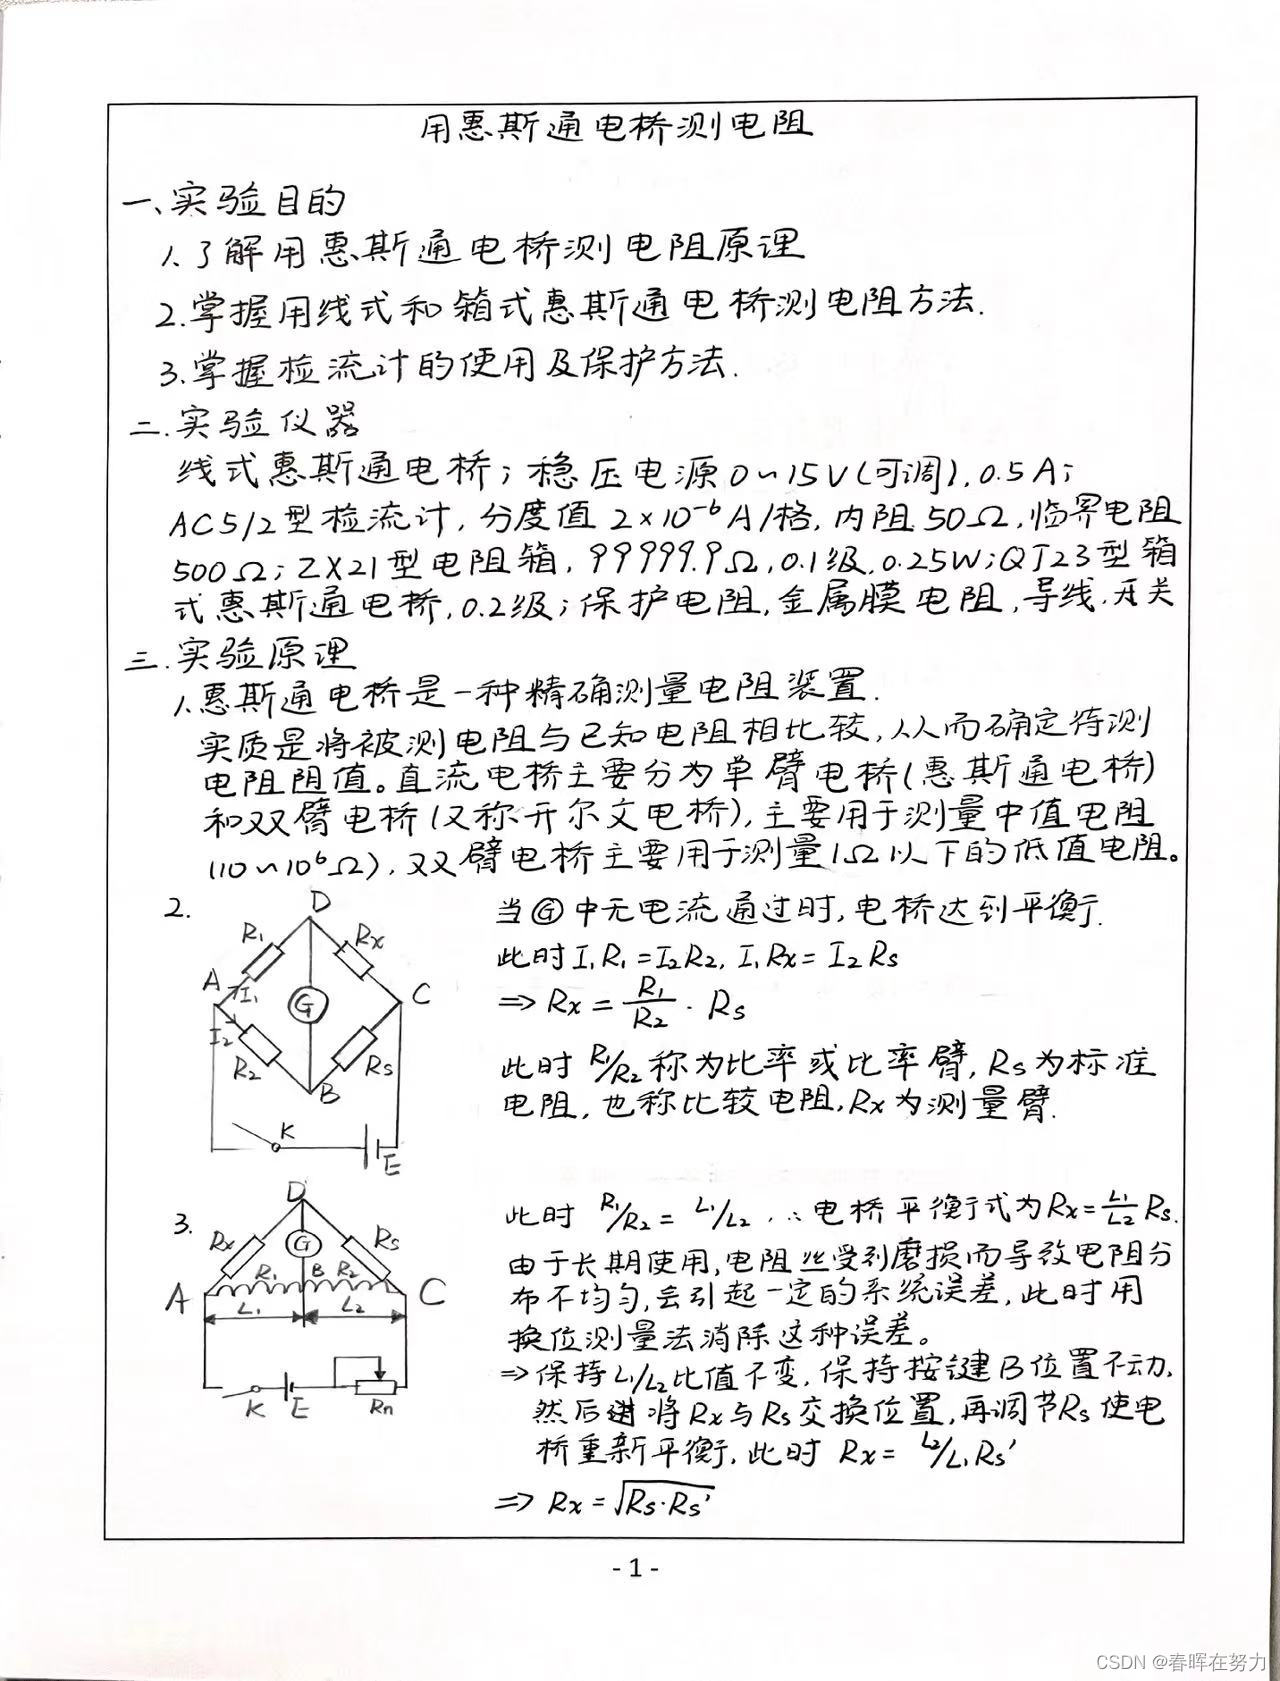 用惠斯通电桥测电阻
一、实验目的
1.了解用惠斯通电桥测电阻原理
2.掌握用线式和箱式惠斯通电桥测电阻方法.
3.掌握检流计的使用及保护方法.
二.实验仪器
线式惠斯通电桥；稳压电源0~15V(可调),0.5A；
AC5/2型检流计,分度值2×10⁻⁶A/格,内阻50Ω,临界电阻
500Ω；ZX21型电阻箱,99999.9Ω,0.1级,0.25W；QJ23型箱
式惠斯通电桥,0.2级；保护电阻,金属膜电阻,导线,开关
三.实验原理
1.惠斯通电桥是一种精确测量电阻装置.
实质是将被测电阻与已知电阻相比较,从而确定待测
电阻阻值。直流电桥主要分为单臂电桥(惠斯通电桥)
和双臂电桥(又称开尔文电桥),主要用于测量中值电阻
(10~10⁶Ω),双臂电桥主要用于测量1Ω以下的低值电阻。
2.
D
R₁
Rx
A
I₁
G
C
I₂
R₂
Rs
B
K
E
当Ⓖ中无电流通过时,电桥达到平衡.
此时I₁R₁=I₂R₂, I₁Rx=I₂Rs
⇒ Rx = R₁/R₂ · Rs
此时 R₁/R₂称为比率或比率臂, Rs为标准
电阻, 也称比较电阻,Rx为测量臂.
3.
D
Rx
G
Rs
R₁
B
R₂
A
C
L₁
L₂
K
E
Rn
此时 R₁/R₂ = L₁/L₂ ,∴电桥平衡式为Rx=L₁/L₂ Rs.
由于长期使用,电阻丝受到磨损而导致电阻分
布不均匀,会引起一定的系统误差,此时用
换位测量法消除这种误差。
⇒保持L₁/L₂比值不变,保持按键B位置不动,
然后将Rx与Rs交换位置,再调节Rs使电
桥重新平衡,此时 Rx= L₂/L₁Rs'
⇒ Rx=√Rs·Rs'
- 1 -
CSDN @春晖在努力